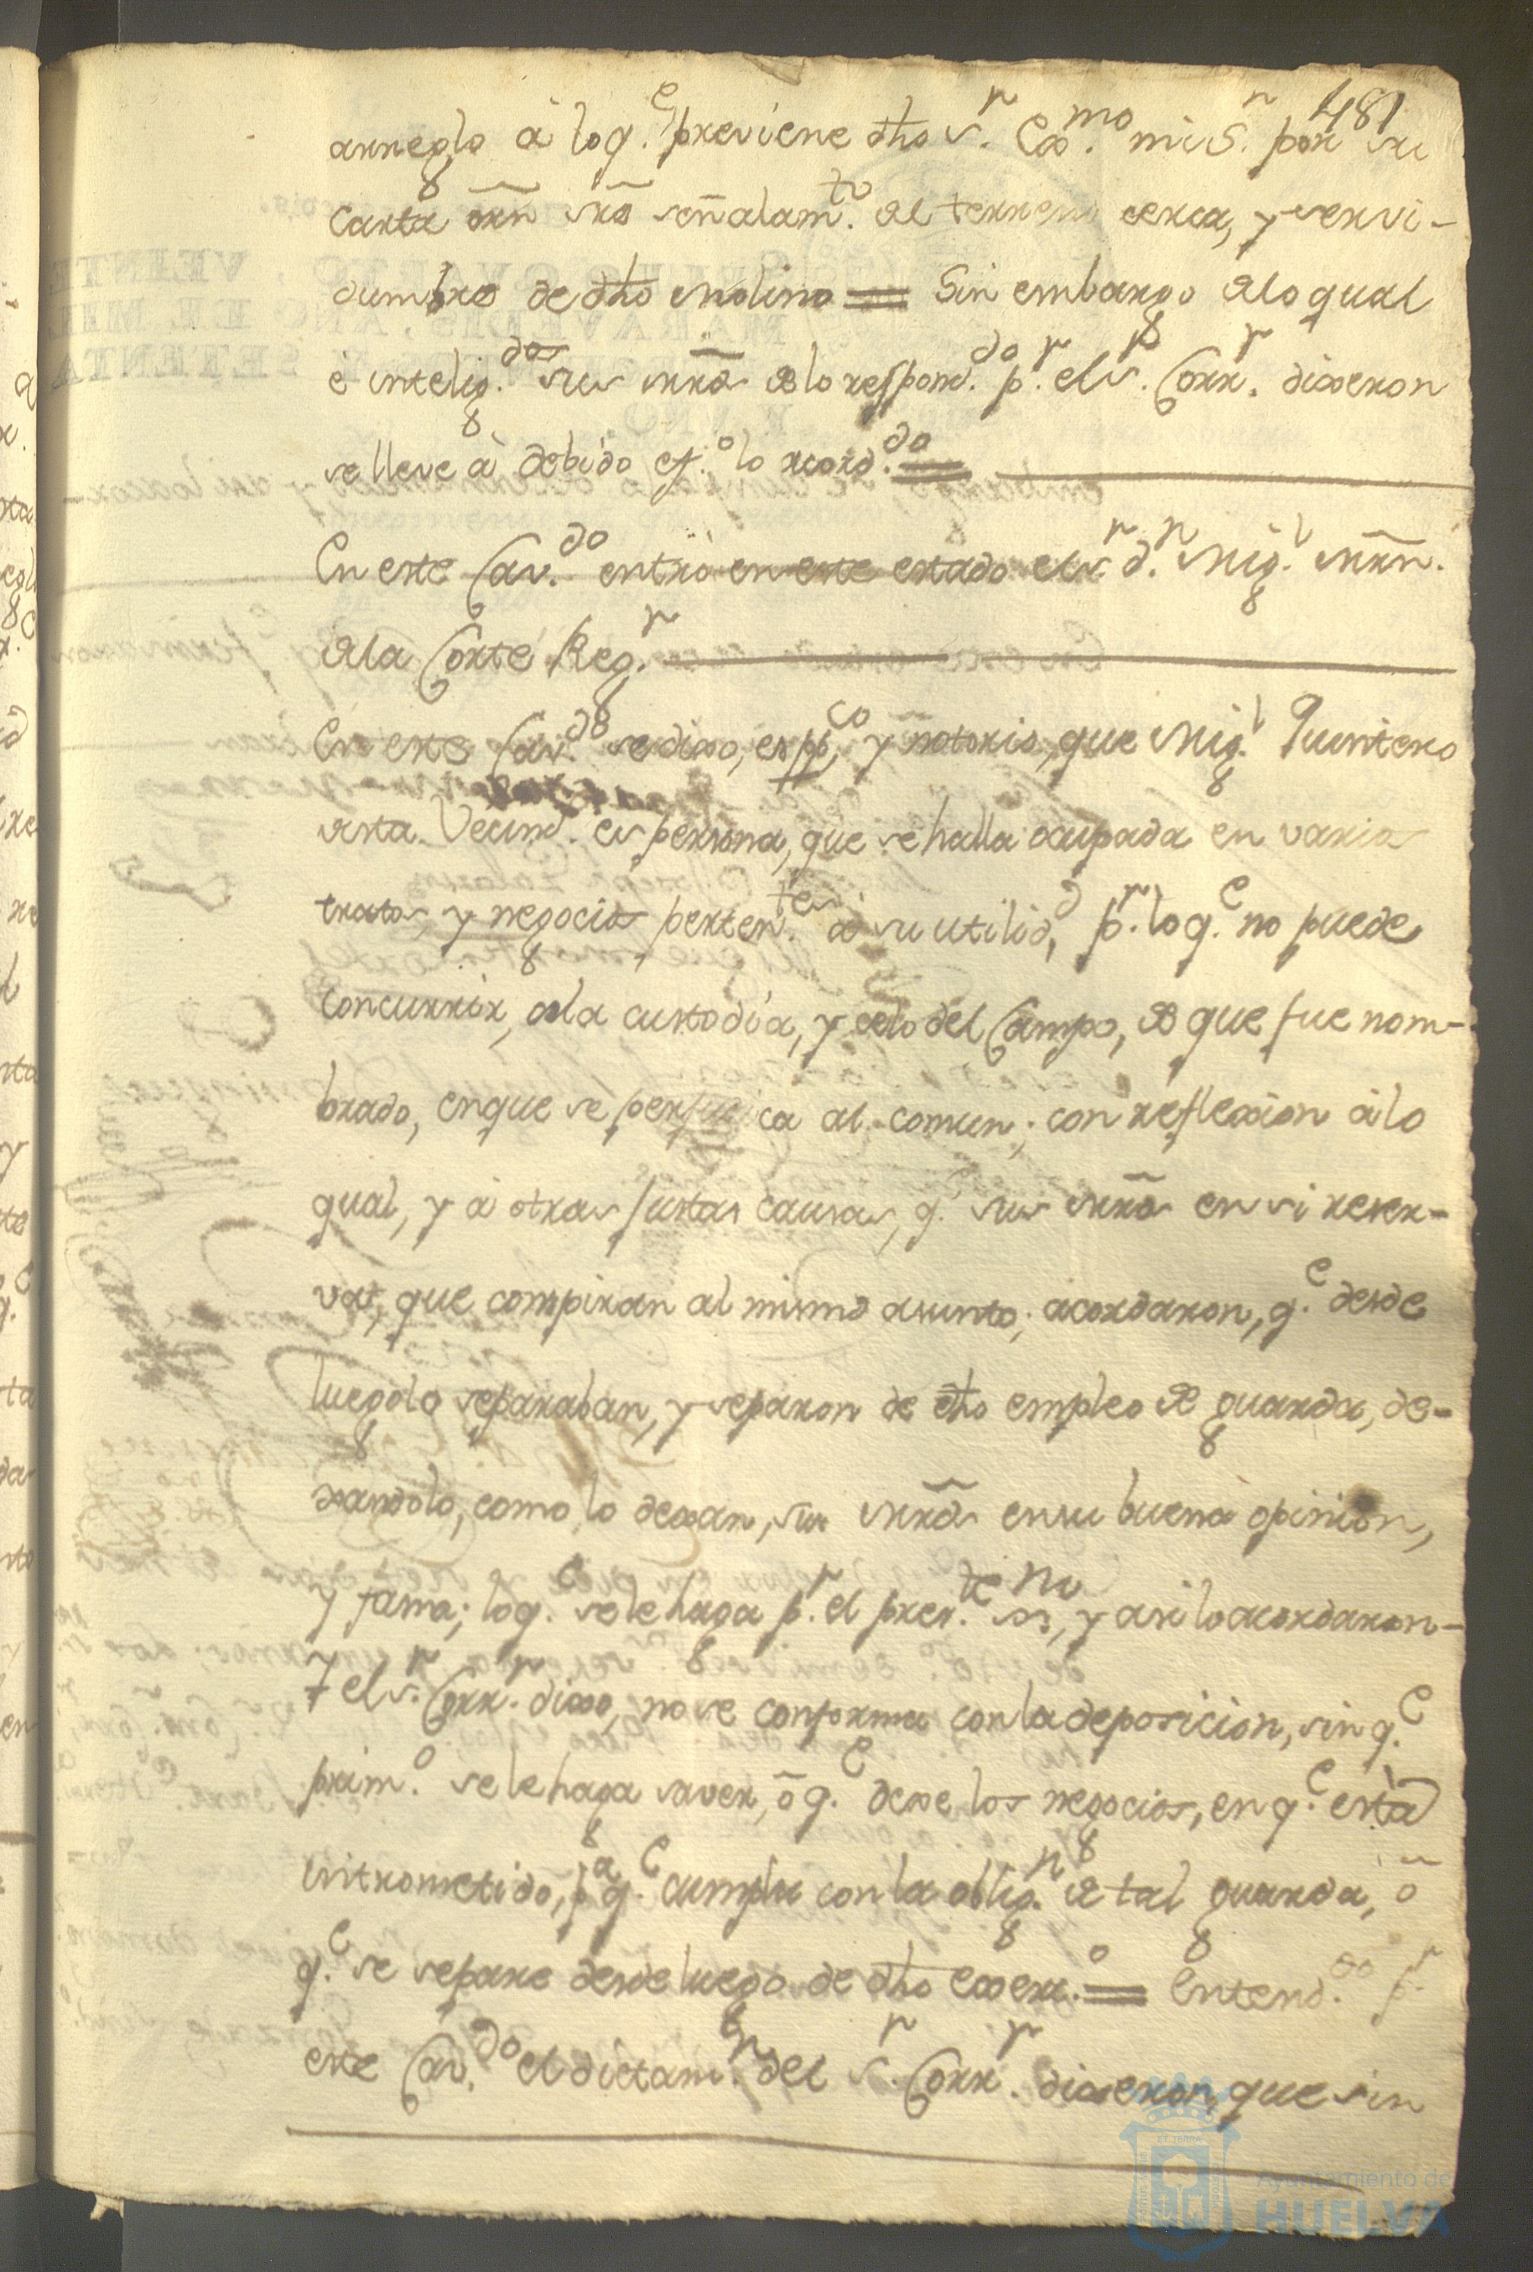 481
arreglo à loq.e previene dho s.r Exc.mo mi S.r por su
carta orn sre señalam.to del terreno cerca, y servi-
dumbre de dho molino = Sin embargo delo qual
è inteligdos sus mrds de lo respond.do p.r el s.r Corr.r dixeron
se lleve à debido ef.o lo acord.do =
En este Cav.do entrò en este estado el s.r d.n Mig.l Mrn.
dela Corte Reg.r
En este Cav.do se dixo, es pp.co y notorio, que Mig.l Quintero
desta Vecind. es persona, que se halla ocupada en varios
tratos, y negocios perten.tes à su utilid.d, p.r loq.e no puede
concurrir, ala custodia, y zelo del Campo, de que fue nom-
brado, enque se perjudica al comun; con reflexion àlo
qual, y à otras justas causas, q.e sus mrds en si reser-
van, que conspiran al mismo asunto; acordaron, q.e desde
luegolo separaban, y separon de dho empleo de guarda, de-
xandolo, como lo dexan, sus mrds ensu buena opinion,
y fama; loq.e sele haga p.r el pres.te no, y asi lo acordaron-
Y el s.r Corr.r dixo, nose conforma conla deposicion, sin q.e
prim.o sele haga saver, ō q.e dexe los negocios, en q.e està
introметido, p.a q.e cumpla conla oblig.n de tal guarda, ō
q.e se separe desde luego de dho exerc.o = Entend.do p.r
este Cav.do el dictam.en del s.r Corr.r dixeron, que sin
Ayuntamiento de
HUELVA